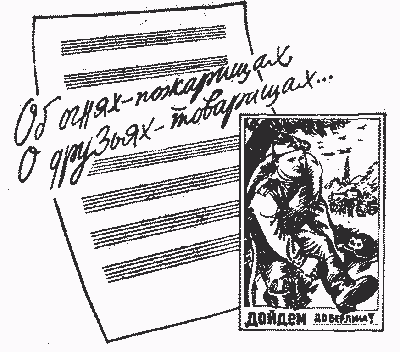 Об огнях-пожарищах,
О друзьях-товарищах...
ДОЙДЕМ ДО БЕРЛИНА!